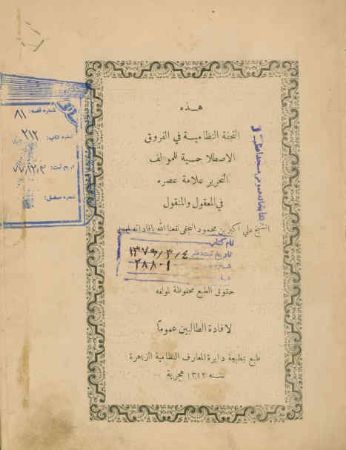 هذه
التحفة النظامية في الفروق
الاصطلاحية للمؤلف
النحرير علامة عصره
في المعقول والمنقول
الشيخ علي اكبر بن محمود النجفي نفعنا الله
حقوق الطبع محفوظة لمؤلفه
لافادة الطالبين عموما
طبع بمطبعة دايرة المعارف النظامية الزاهرة
سنه ١٣١٢ هجرية
شماره قفسه: ٨١
شماره کتاب: ٢١٢
شماره مسلسل:
نام کتاب
١٣٧٩/٣/٤
٢٨٨٠١